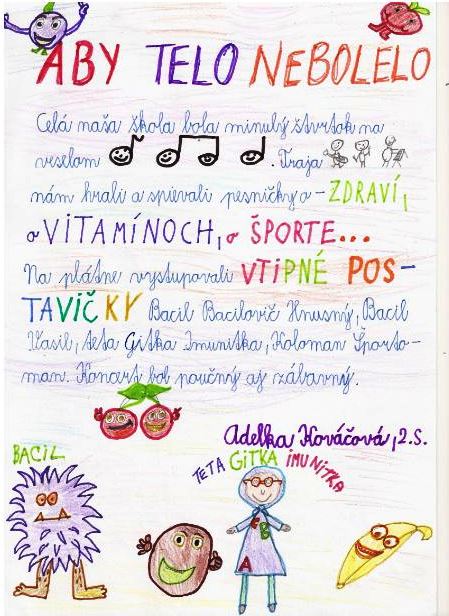 ABY TELO NEBOLELO
Celá naša škola bola minulý štvrtok na
veselom . Traja
nám hrali a spievali pesničky o - ZDRAVÍ,
o VITAMÍNOCH, o ŠPORTE...
Na plátne vystupovali VTIPNÉ POS-
TAVIČKY Bacil Bacilovič Hnusný, Bacil
Vasil, teta Gitka Imunitka, Koloman Športo-
man. Koncert bol poučný aj zábavný.
Adelka Kováčová, 2.S.
BACIL
TETA GITKA IMUNITKA
A B
A